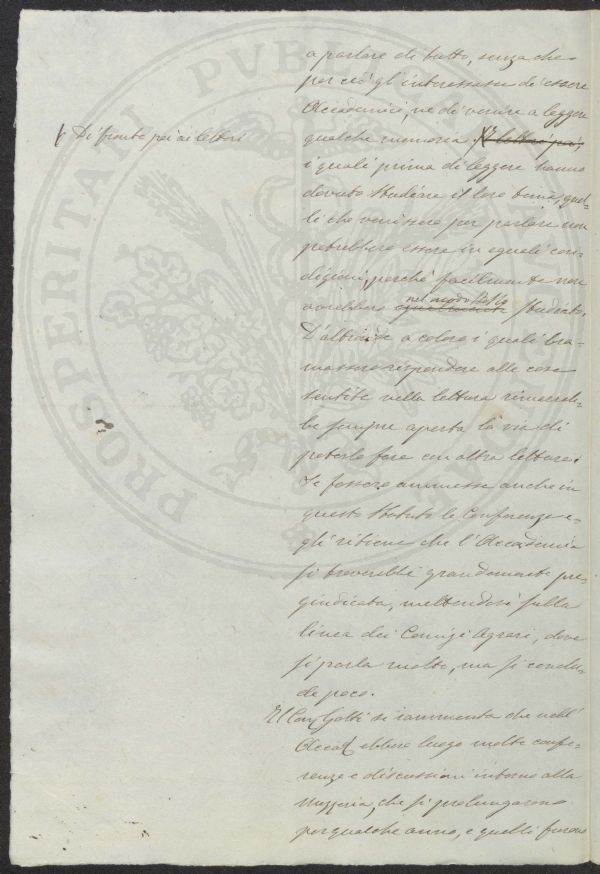 a parlare di tutto, senza che
per ciò gl'interessasse di essere
Accademici, ne di venire a leggere
qualche memoria.
Di fronte poi ai lettori
i quali prima di leggere hanno
dovuto studiare il loro tema, quel-
li che venissero per parlare non
potrebbero essere in eguali con-
dizioni, perchè facilmente non
avrebbero nel modo stesso studiato.
D'altronde a coloro i quali bra-
massero rispondere alle cose
sentite nella lettura rimarreb-
be sempre aperta la via di
poterlo fare con altra lettura.
Se fossero ammesse anche in
questo Statuto le Conferenze e-
gli ritiene che l'Accademia
si troverebbe grandemente pre-
giudicata, mettendosi sulla
linea dei Comizi Agrari, dove
si parla molto, ma si conclu-
de poco.
Il Con. Gotti si rammenta che nell'
Accad. ebbero luogo molte confe-
renze e discussioni intorno alla
che si prolungarono
per qualche anno, e quelli furono
PROSPERITATI PVBLICAE